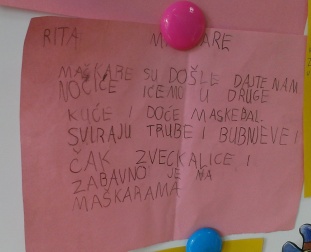 RITA M KARE
MAŠKARE SU DOŠLE DAJTE NAM
NOČICE IĆEMO U DRUGE
KUĆE I DOĆE MASKEBAL.
SVIRAJU TRUBE I BUBNJEVE I
ČAK ZVECKALICE I
ZABAVNO JE NA
MAŠKARAMA